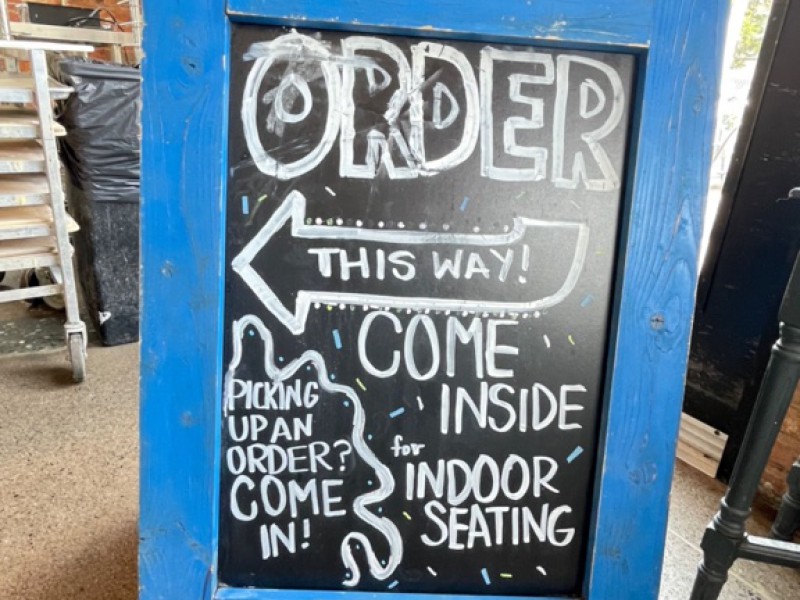 ORDER
THIS WAY!
COME
INSIDE
for
INDOOR
SEATING
PICKING
UP AN
ORDER?
COME
IN!